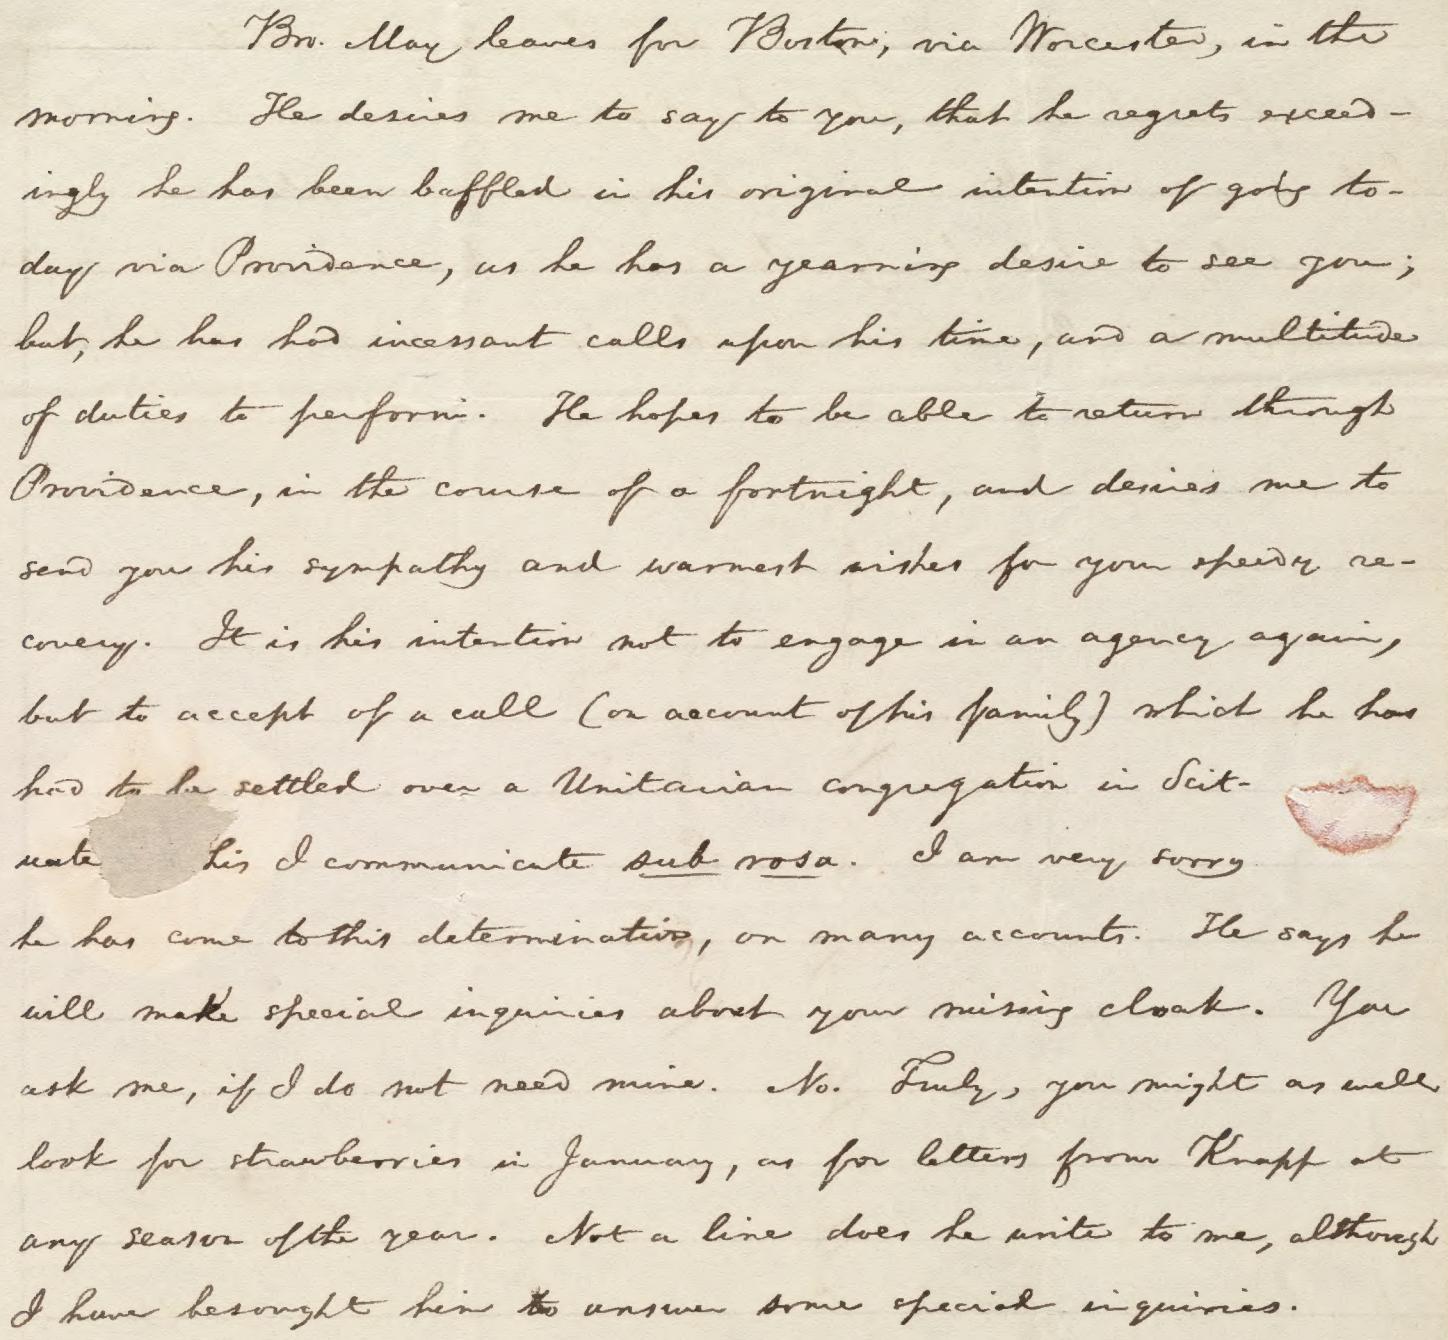 Bro. May leaves for Boston, via Worcester, in the
morning. He desires me to say to you, that he regrets exceed-
ingly he has been baffled in his original intention of going to-
day via Providence, as he has a yearning desire to see you;
but, he has had incessant calls upon his time, and a multitude
of duties to perform. He hopes to be able to return through
Providence, in the course of a fortnight, and desires me to
send you his sympathy and warmest wishes for your speedy re-
covery. It is his intention not to engage in an agency again,
but to accept of a call (on account of his family) which he has
had to be settled over a Unitarian congregation in Scit-
uate his I communicate sub rosa. I am very sorry
he has come to this determination, on many accounts. He says he
will make special inquiries about your missing cloak. You
ask me, if I do not need mine. No. Truly, you might as well
look for strawberries in January, as for letters from Knapp at
any season of the year. Not a line does he write to me, although
I have besought him to answer some special inquiries.